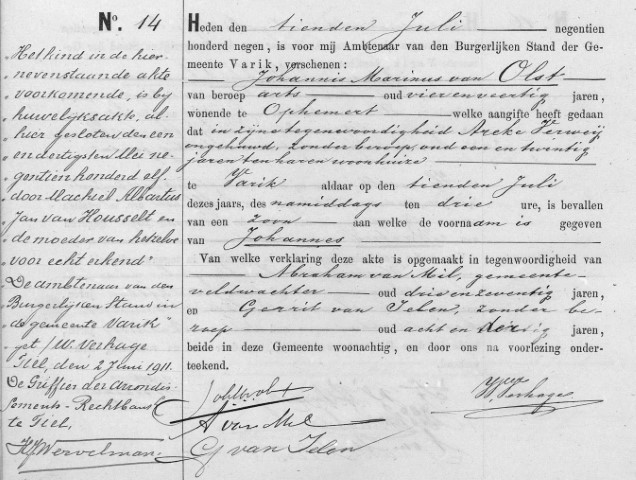 No. 14
Het kind in de hier
nevenstaande akte
voorkomende, is by
huwelyksakte, al
hier gesloten den een
en dertigsten Mei ne
gentien honderd elf
door Machiel Albartus
Jan van Housselt en
de moeder van hetzelve
voor echt erkend"
De ambtenaar van den
Burgerlyken Stand in
de gemeente Varik"
get/ W. Verhage
Tiel, den 2 Juni 1911.
De Griffier der Arrondis-
sements-Rechtbank
te Tiel,
Wervelman
Heden den tienden Juli negentien
honderd negen, is voor mij Ambtenaar van den Burgerlijken Stand der Ge-
meente Varik, verschenen:
Johannis Marinus van Olst
van beroep arts oud vier en veertig jaren,
wonende te Ophemert welke aangifte heeft gedaan
dat in zijne tegenwoordigheid Areke Verweij
ongehuwd, zonder beroep, oud een en twintig
jaren ten haren woonhuize
te Varik aldaar op den tienden Juli
dezes jaars, des namiddags ten drie ure, is bevallen
van een zoon aan welke de voornaam is gegeven
van Johannes
Van welke verklaring deze akte is opgemaakt in tegenwoordigheid van
Abraham van Mil, gemeente-
veldwachter oud drie en zeventig jaren,
en Gerrit van Telen, zonder be-
roep oud acht en dertig jaren,
beide in deze Gemeente woonachtig, en door ons na voorlezing onder-
teekend.
Verhage
A van Mil
G van Telen